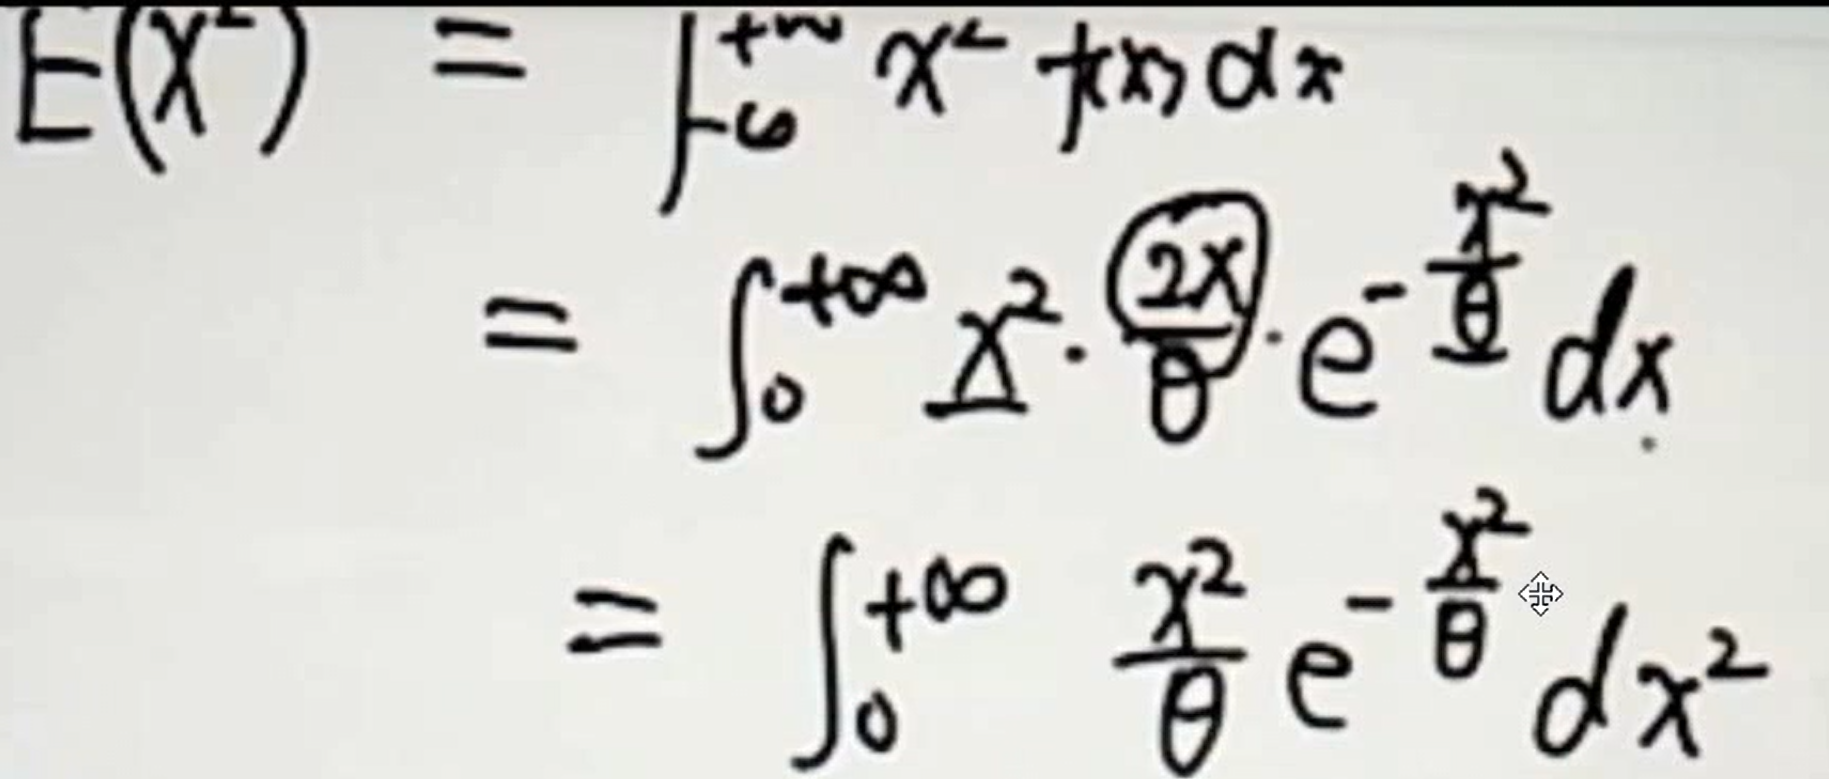 E(X²) = ∫_{-∞}^{+∞} x² f(x) dx
= ∫_0^{+∞} x² · 2x/θ · e^{-x²/θ} dx
= ∫_0^{+∞} x²/θ e^{-x²/θ} dx²